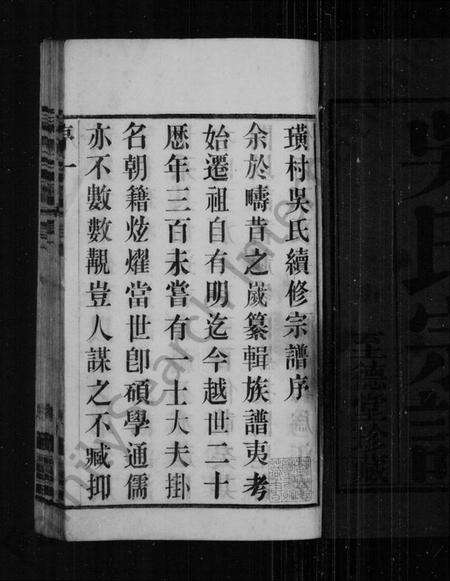 璜村吳氏續修宗譜序
余於疇昔之歲纂輯族譜夷考
始遷祖自有明迄今越世二十
歷年三百未嘗有 士大夫掛
名朝籍炫燿當世卽碩學通儒
亦不數數覯豈人謀之不臧抑
序 一